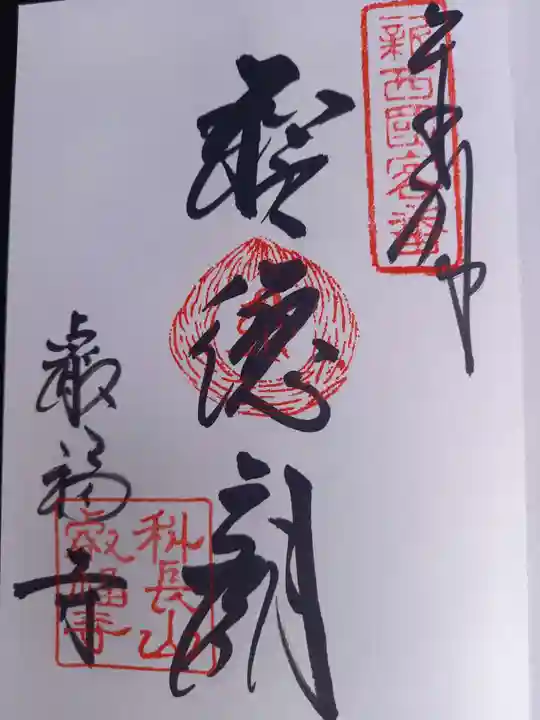 新西国客番
聖徳廟
叡福寺
科長山
叡福寺